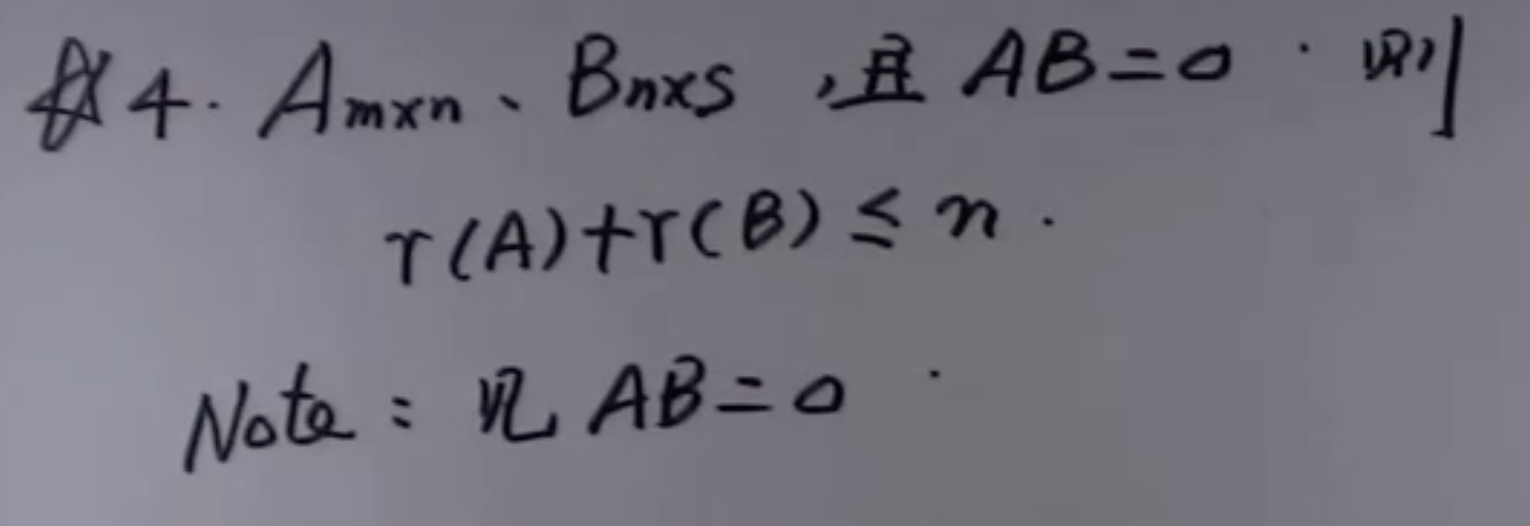 ☆4. Amxn、Bnxs，且 AB=0. 则
r(A)+r(B)≤n.
Note: 见 AB=0.